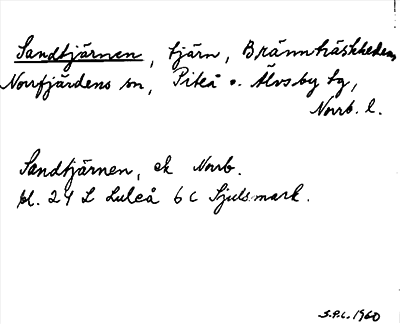 Sandtjärnen, tjärn, Bränträskheden,
Norrfjärdens sn, Piteå o. Älvsby tg,
Norrb. l.
Sandtjärnen, ek Norrb.
bl. 24 L Luleå 6 c Sjulsmark.
S.P.L. 1960